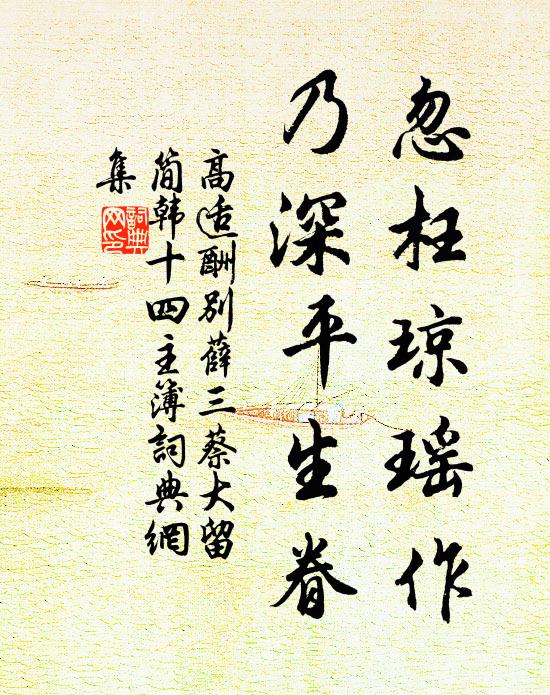 忽枉琼瑶作
乃深平生眷
高适酬别薛三蔡大留
简韩十四主簿詞典網
集
詞典
网印